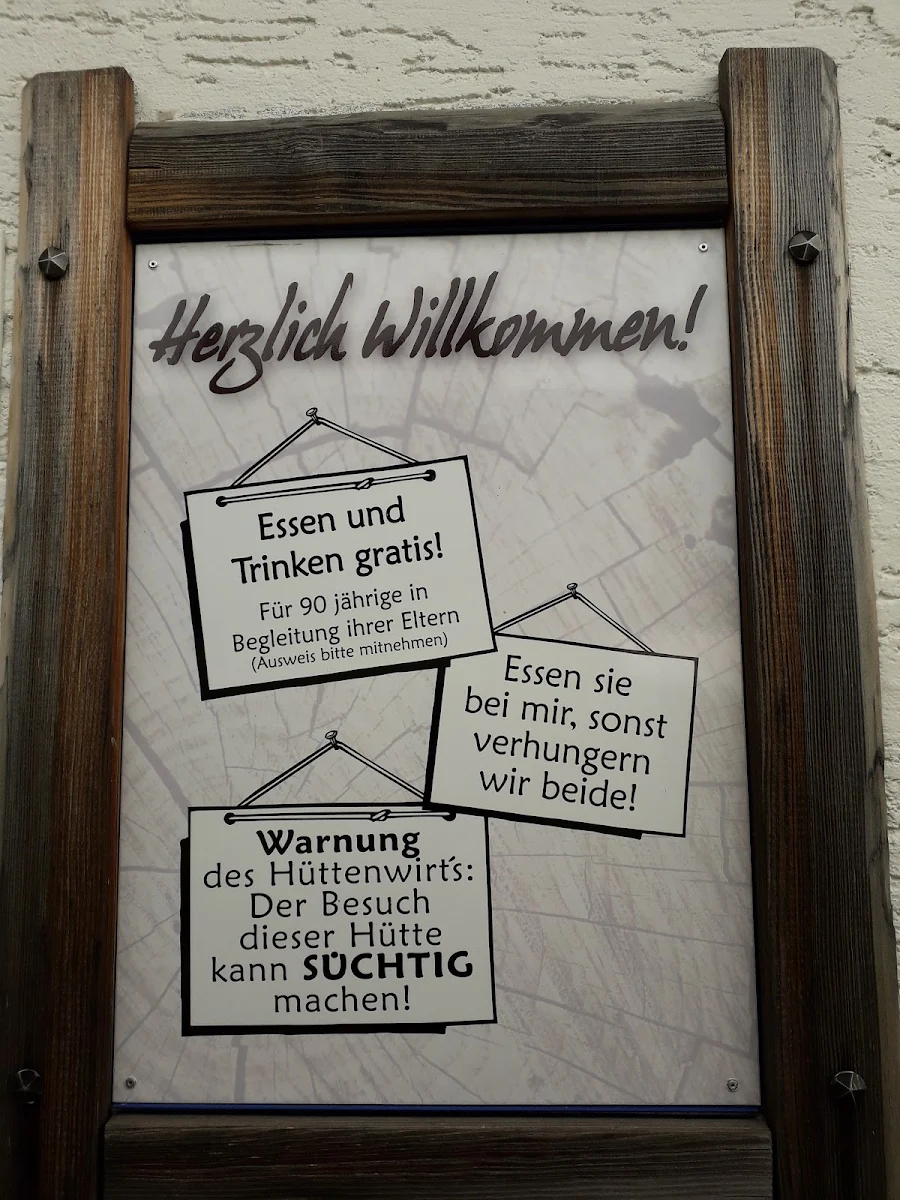 Herzlich Willkommen!
Essen und
Trinken gratis!
Für 90 jährige in
Begleitung ihrer Eltern
(Ausweis bitte mitnehmen)
Essen sie
bei mir, sonst
verhungern
wir beide!
Warnung
des Hüttenwirt´s:
Der Besuch
dieser Hütte
kann SÜCHTIG
machen!